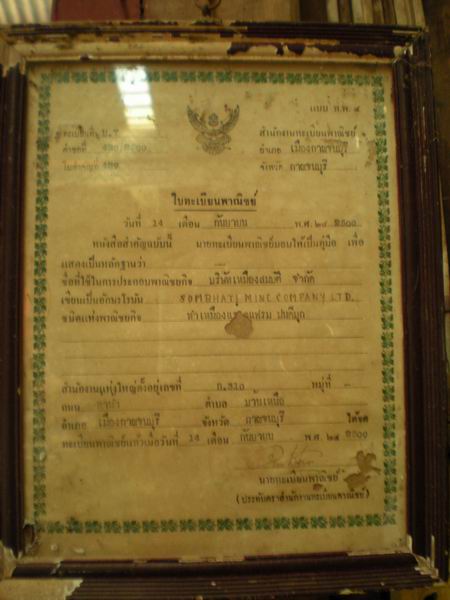 แบบ ท.พ. ๔
ทะเบียนเลขที่
สำนักงานทะเบียนพาณิชย์
คำขอที่ 490/2500
อำเภอ เมืองกาญจนบุรี
ใบสำคัญที่ 489
จังหวัด กาญจนบุรี
ใบทะเบียนพาณิชย์
วันที่ 14 เดือน กันยายน พ.ศ. ๒๔ 2500
หนังสือสำคัญฉบับนี้ นายทะเบียนพาณิชย์มอบให้เป็นคู่มือ เพื่อ
แสดงเป็นหลักฐานว่า
ชื่อที่ใช้ในการประกอบพาณิชยกิจ บริษัทเหมืองสมบัติ จำกัด
เขียนเป็นอักษรโรมัน SOMBHATI MINE COMPANY LTD.
ชนิดแห่งพาณิชยกิจ ทำเหมืองแร่
สำนักงานแห่งใหญ่ตั้งอยู่เลขที่ ก.320 หมู่ที่ -
ถนน ตำบล บ้านเหนือ
อำเภอ เมืองกาญจนบุรี จังหวัด กาญจนบุรี ได้จด
ทะเบียนพาณิชย์แล้วเมื่อวันที่ 14 เดือน กันยายน พ.ศ. ๒๔ 2500
นายทะเบียนพาณิชย์
(ประทับตราสำนักงานทะเบียนพาณิชย์)